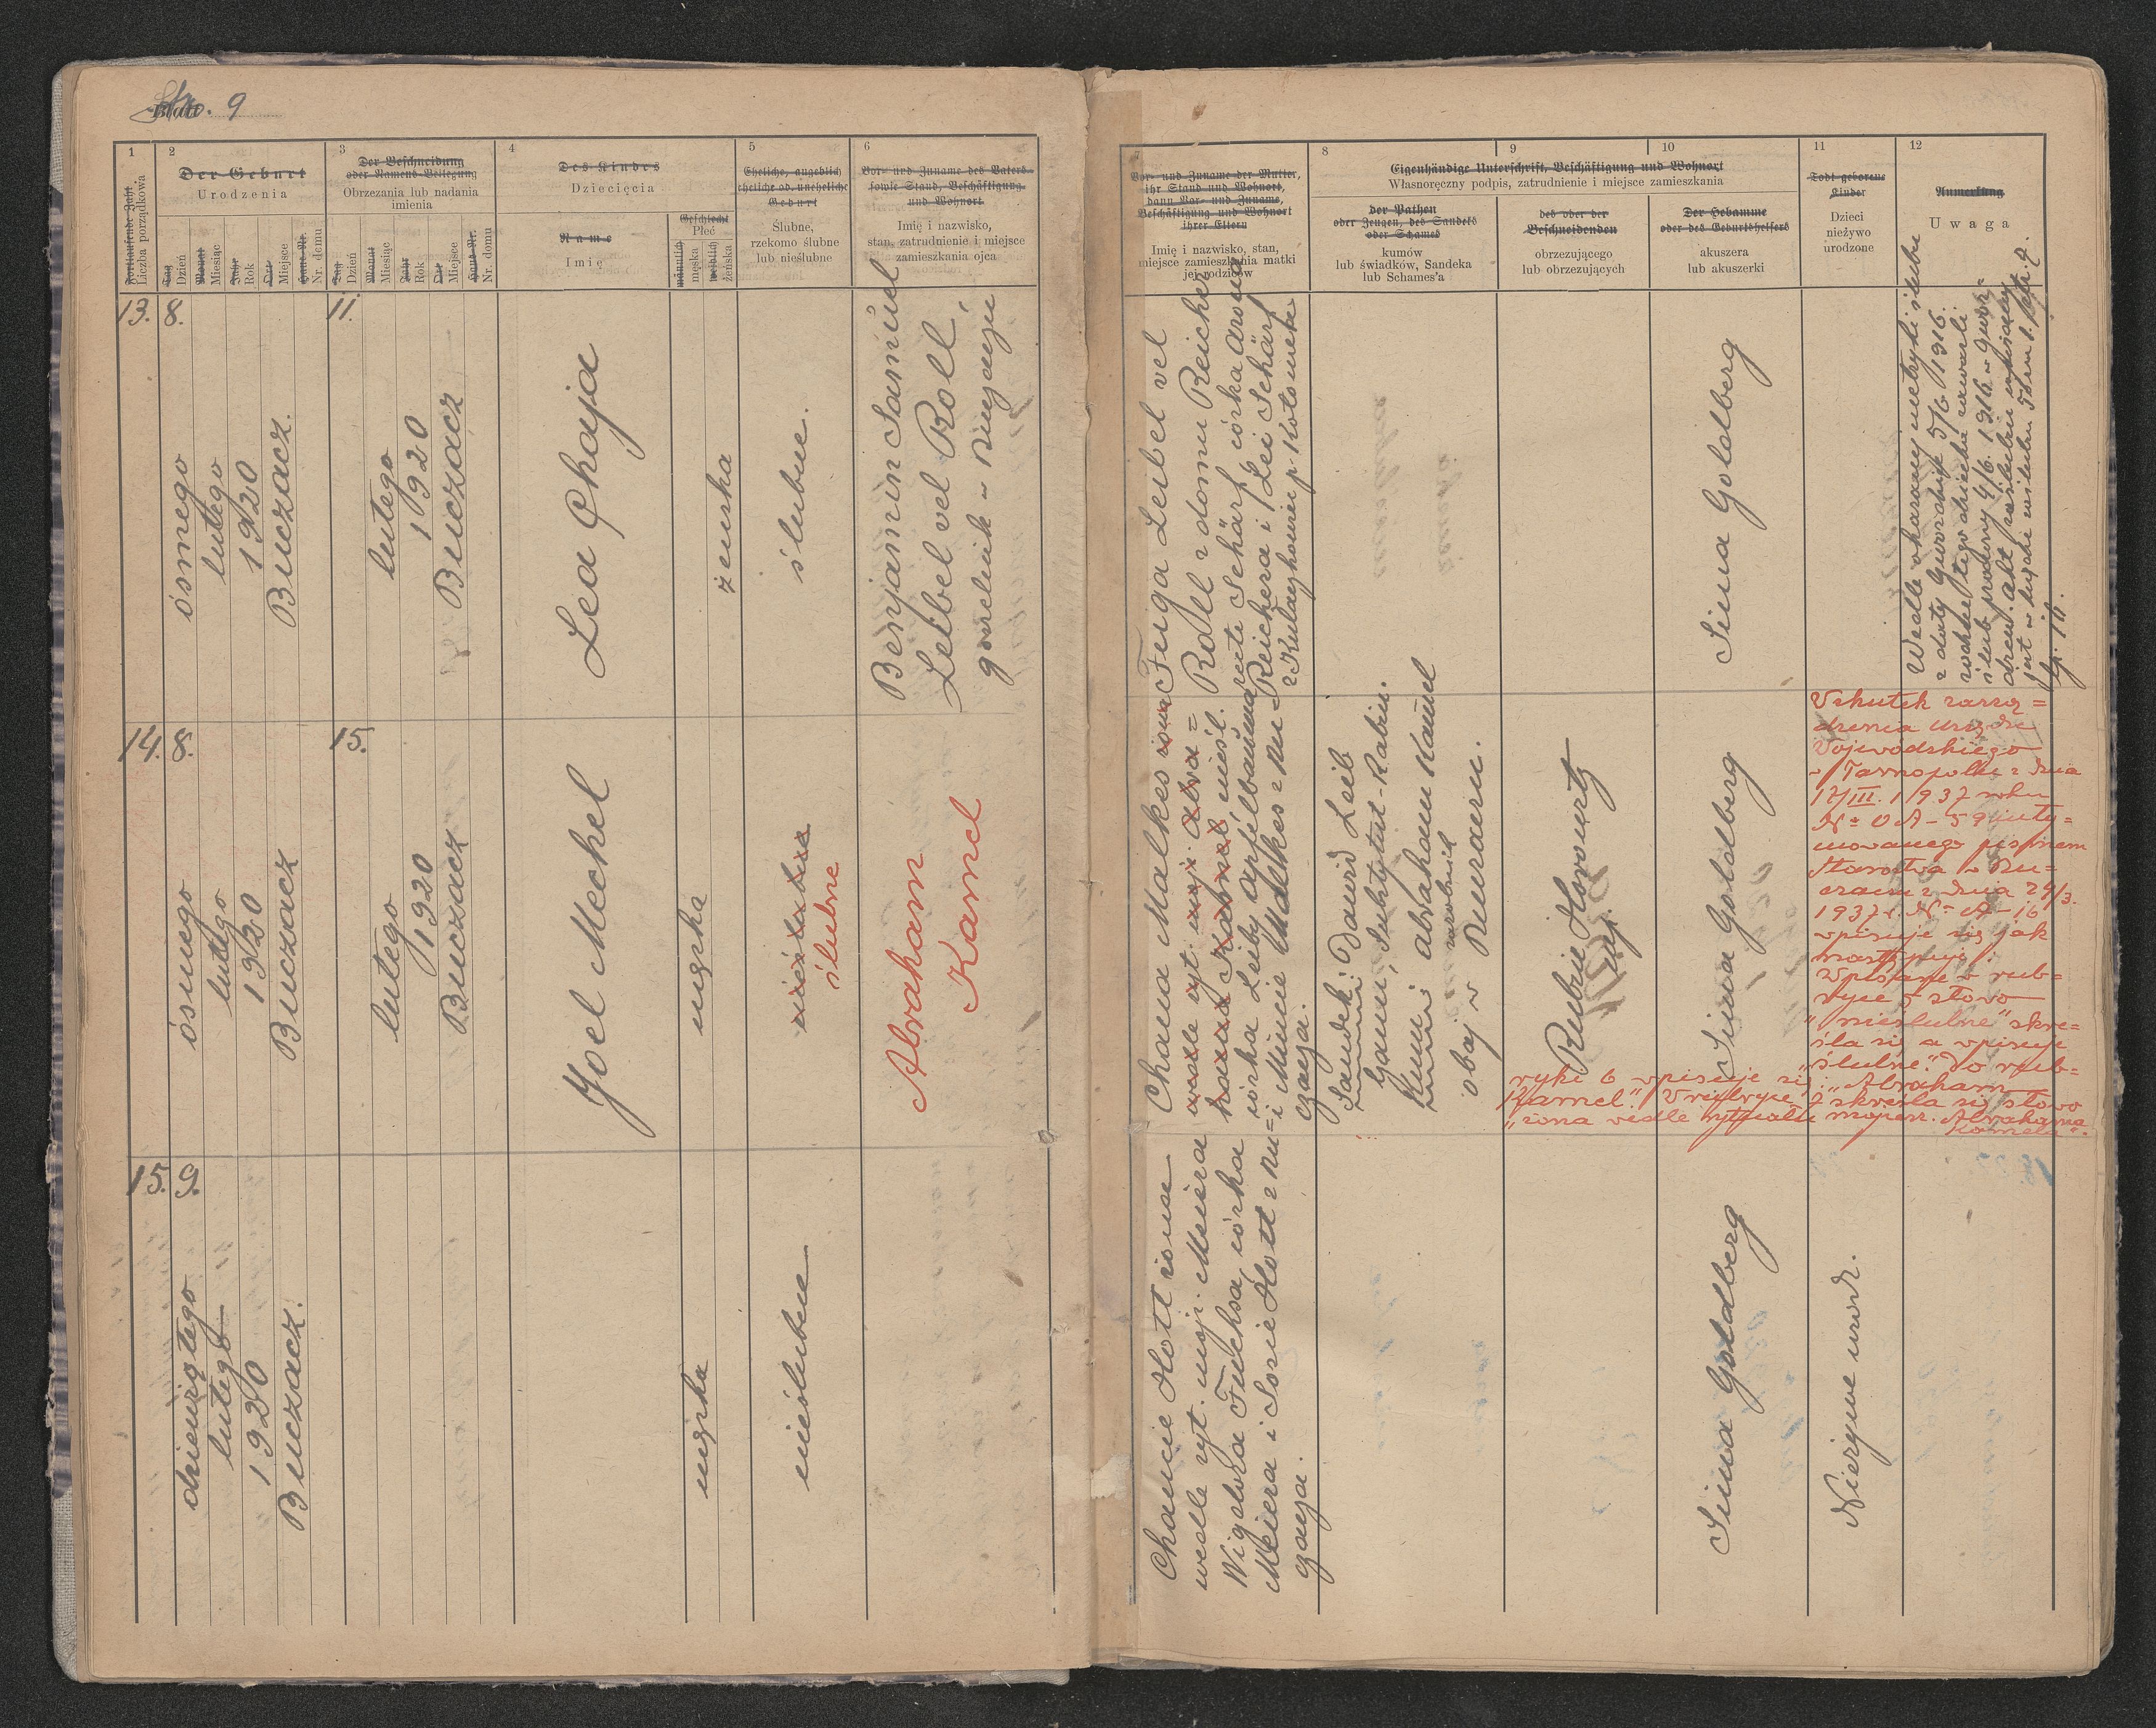 Stro. 9
1
Fortlaufende Zahl
Liczba porządkowa
2
Der Geburt
Urodzenia
Tag
Dzień
Monat
Miesiąc
Jahr
Rok
Ort
Miejsce
Haus-Nr.
Nr. domu
3
Der Beschneidung
oder Namens-Beilegung
Obrzezania lub nadania
imienia
Tag
Dzień
Monat
Miesiąc
Jahr
Rok
Ort
Miejsce
Haus-Nr.
Nr. domu
4
Des Kindes
Dziecięcia
Name
Imię
Geschlecht
Płeć
männlich
męska
weiblich
żeńska
5
Eheliche, angeblich
eheliche od. uneheliche
Geburt
Ślubne,
rzekomo ślubne
lub nieślubne
6
Vor- und Zuname des Vaters
sowie Stand, Beschäftigung
und Wohnort
Imię i nazwisko,
stan, zatrudnienie i miejsce
zamieszkania ojca
7
Vor- und Zuname der Mutter,
ihr Stand und Wohnort,
dann Vor- und Zuname,
Beschäftigung und Wohnort
ihrer Eltern
Imię i nazwisko, stan,
miejsce zamieszkania matki
jej rodziców
8
9
10
Eigenhändige Unterschrift, Beschäftigung und Wohnort
Własnoręczny podpis, zatrudnienie i miejsce zamieszkania
der Pathen
oder Zeugen, des Sandeks
oder Schames
kumów
lub świadków, Sandeka
lub Schames'a
des oder der
Beschneidenden
obrzezującego
lub obrzezujących
Der Hebamme
oder des Geburtshelfers
akuszera
lub akuszerki
11
Todt geborene
Kinder
Dzieci
nieżywo
urodzone
12
Anmerkung
Uwaga
13.
8.
ósmego
lutego
1920
Buczacz.
11.
lutego
1920
Buczacz
Lea Chaja
żeńska
ślubne.
Benjamin Samuel
Leibel vel Roll,
gorzelnik w Buczaczu
Feiga Leibel vel
Roll z domu Reicher
recte Schärf, córka Arona
Reichera i Lei Schärf
Sima Goldberg
Wedle okazanej metryki ślubu
14.
8.
ósmego
lutego
1920
Buczacz
15.
lutego
1920
Buczacz
Joel Mechel
męska
nieślubne
ślubne
Abraham
Kamel
Chana Malkes żona
wedle ryt. mojż. Abra=
hama Kamel, nieśl.
córka Leiby Apfelbauma
i Minie Malkes z Bu=
czacza.
Sandek: Dawid Leib
Substytut-Rabin.
Kum: Abraham Kamel
zarobnik
obaj w Buczaczu.
Rubin Horowitz
Sima Goldberg
Wskutek zarzą=
dzenia Urzędu
Wojewodzkiego
w Tarnopolu z dnia
17/III. 1937 roku
No OA-59 inty=
mowanego pismem
Starostwa w Bu=
czaczu z dnia 24/3.
1937 r. No A-16
wpisuje się jak
następuje:
Wpisane w rub=
ryce 5 słowo
"nieślubne" skre=
śla się a wpisuje
"ślubne". Do rub=
ryki 6 wpisuje się: "Abraham
Kamel". W rubryce 7 skreśla się słowo
"żona wedle rytuału mojżesz. Abrahama
Kamela".
15.
9.
dziewiątego
lutego
1920
Buczacz.
męska
nieślubne
Chancie Hott żona
wedle ryt. mojż. Meiera
Wigdora Fuchsa, córka
Meiera i Sosie Hott z Bu=
czacza.
Sima Goldberg
Nieżywe urodz.